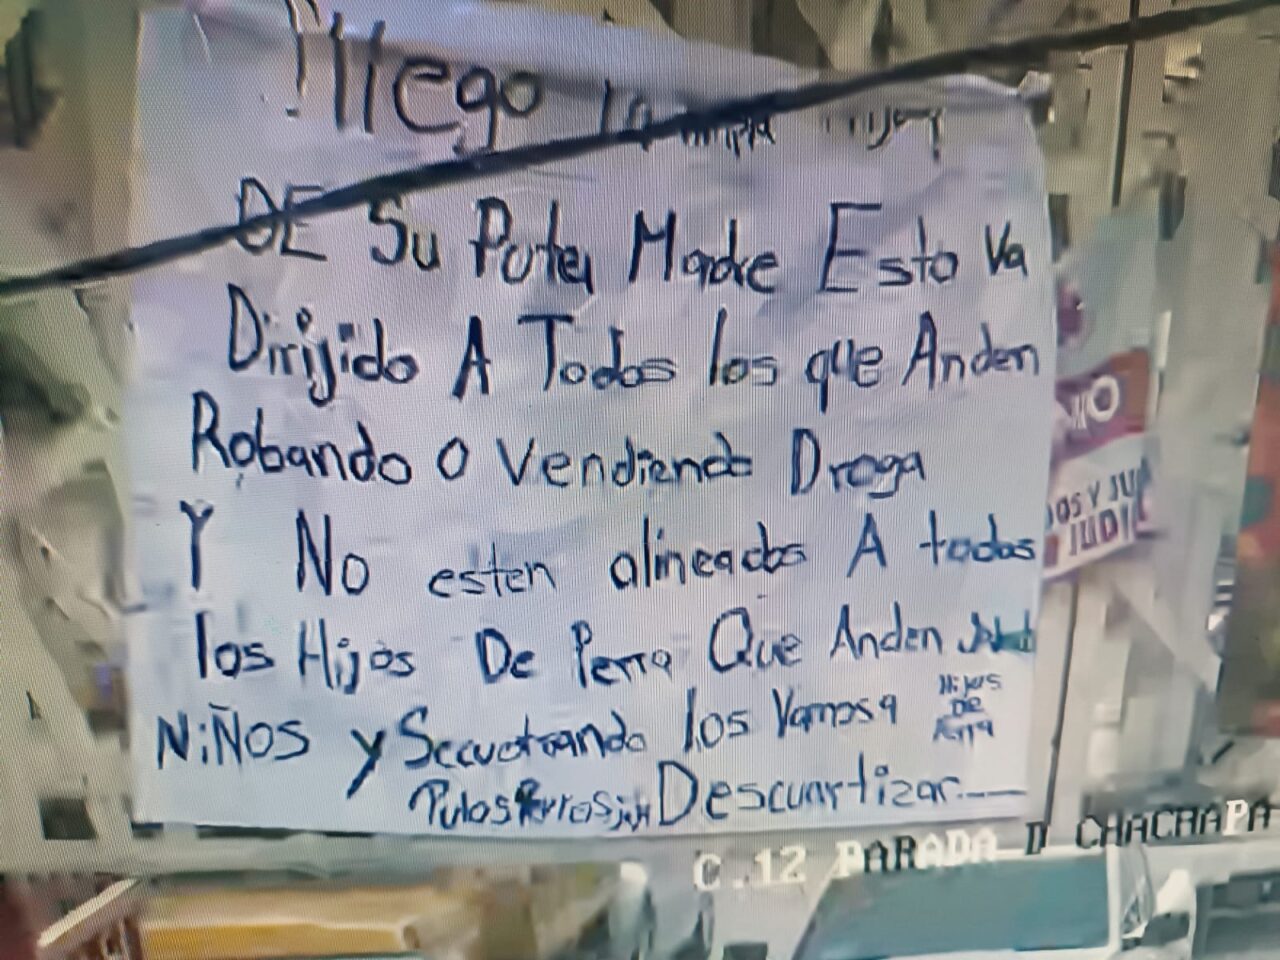 ¡llego la limpia hijos
DE Su Puta Madre Esto Va
Dirijido A Todos los que Anden
Robando O Vendiendo Droga
Y No esten alineados A todos
los Hijos De Perra Que Anden
NiÑOS y Secuetrando los Vamos a
Hijos
De
Perra
Putos Perros Descuartizar
MO
DOS Y JU
JUDI
C.12 PARADA D CHACHAPA